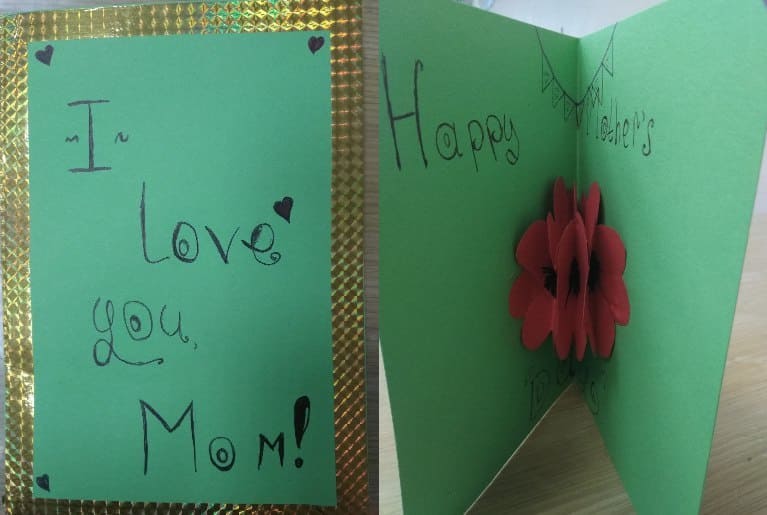 ~I~
Love
you,
Mom!
Happy Mother's